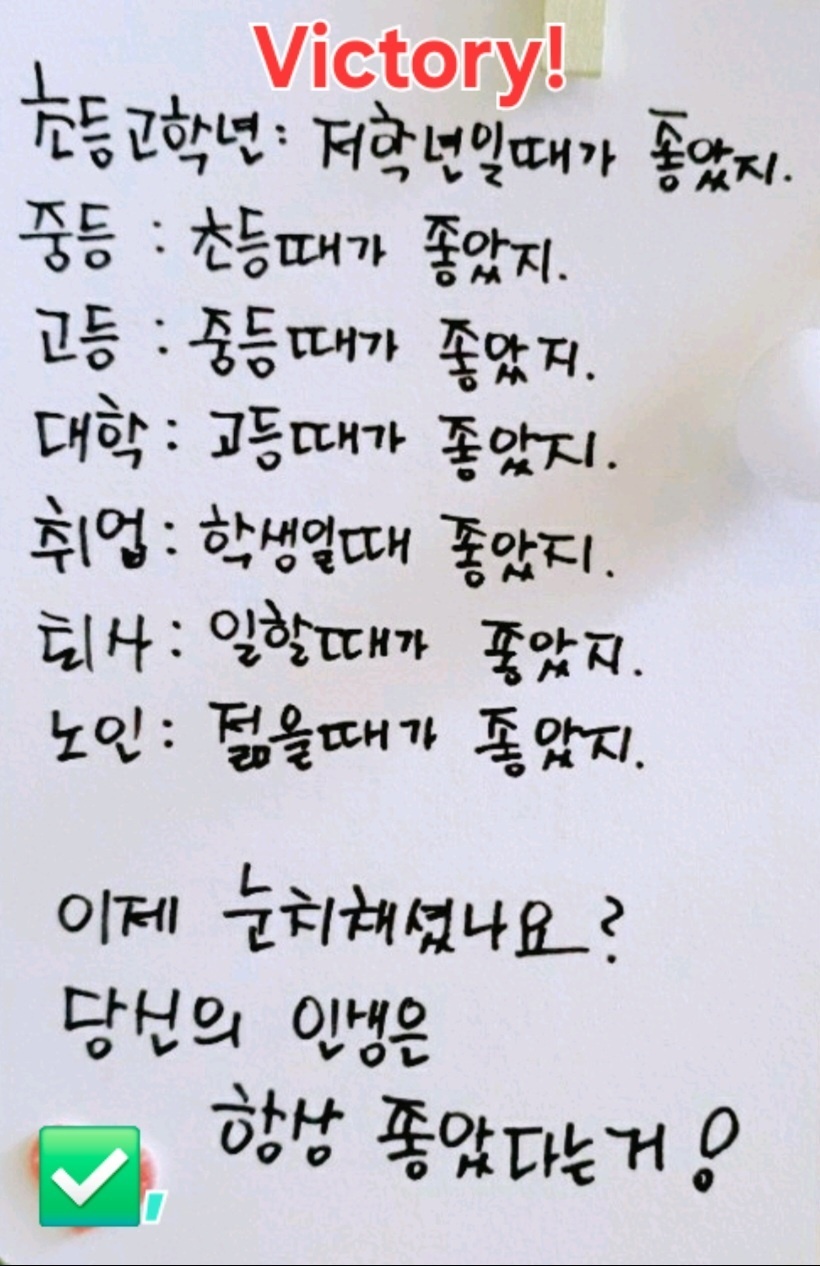 Victory!
초등고학년: 저학년일때가 좋았지.
중등 : 초등때가 좋았지.
고등 : 중등때가 좋았지.
대학: 고등때가 좋았지.
취업: 학생일때 좋았지.
퇴사: 일할때가 좋았지.
노인: 젊을때가 좋았지.
이제 눈치채셨나요?
당신의 인생은
항상 좋았다는거!
,